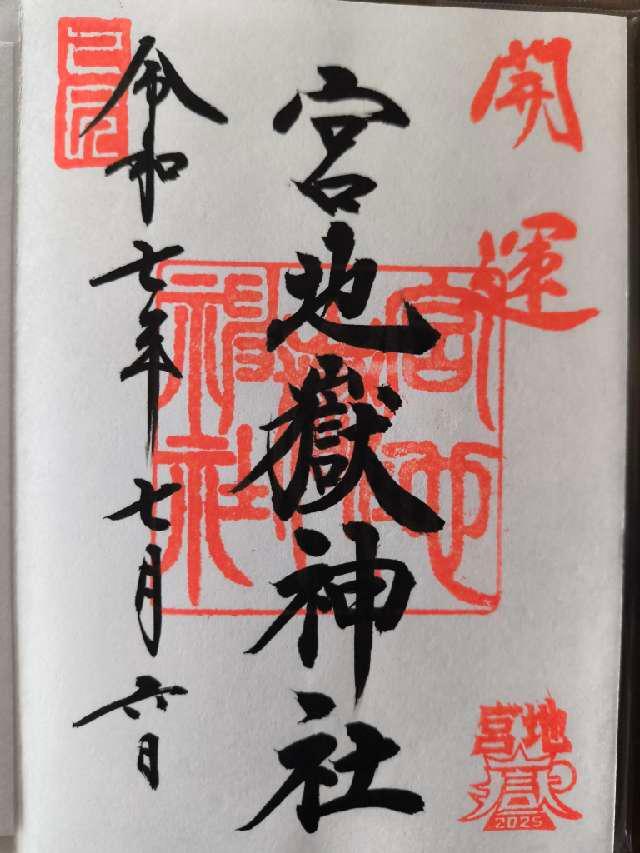 開運
宮地嶽神社
令和七年七月六日
宮地嶽神社
宮地
嶽
2025